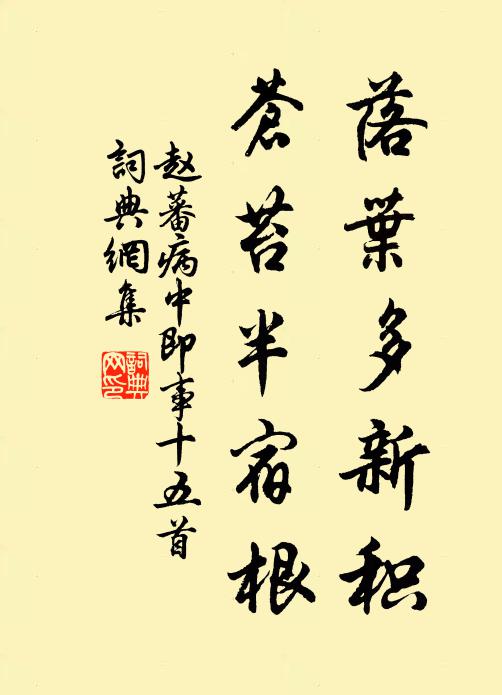 落葉多新积
蒼苔半宿根
赵蕃病中即事十五首
詞典網集
詞典
网印